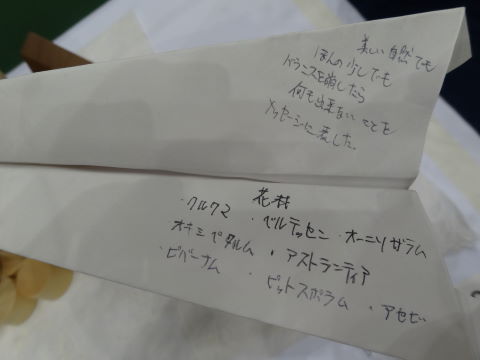 美しい自然でも
ほんの少しでも
バランスを崩したら
何も出来ないことを
メッセージに表した。
花材
・クルクマ ・ベルテッセン ・オーニソガラム
オキシペタルム ・アストランティア
・ビバーナム ・ピットスポラム ・アセビ